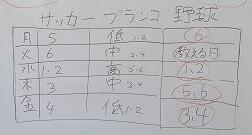 サッカー ブランコ 野球
月 5 低1.2 6
火 6 中3.4 教える月
水 1.2 高5.6 1.2
木 3 中3.4 5.6
金 4 低1.2 3.4